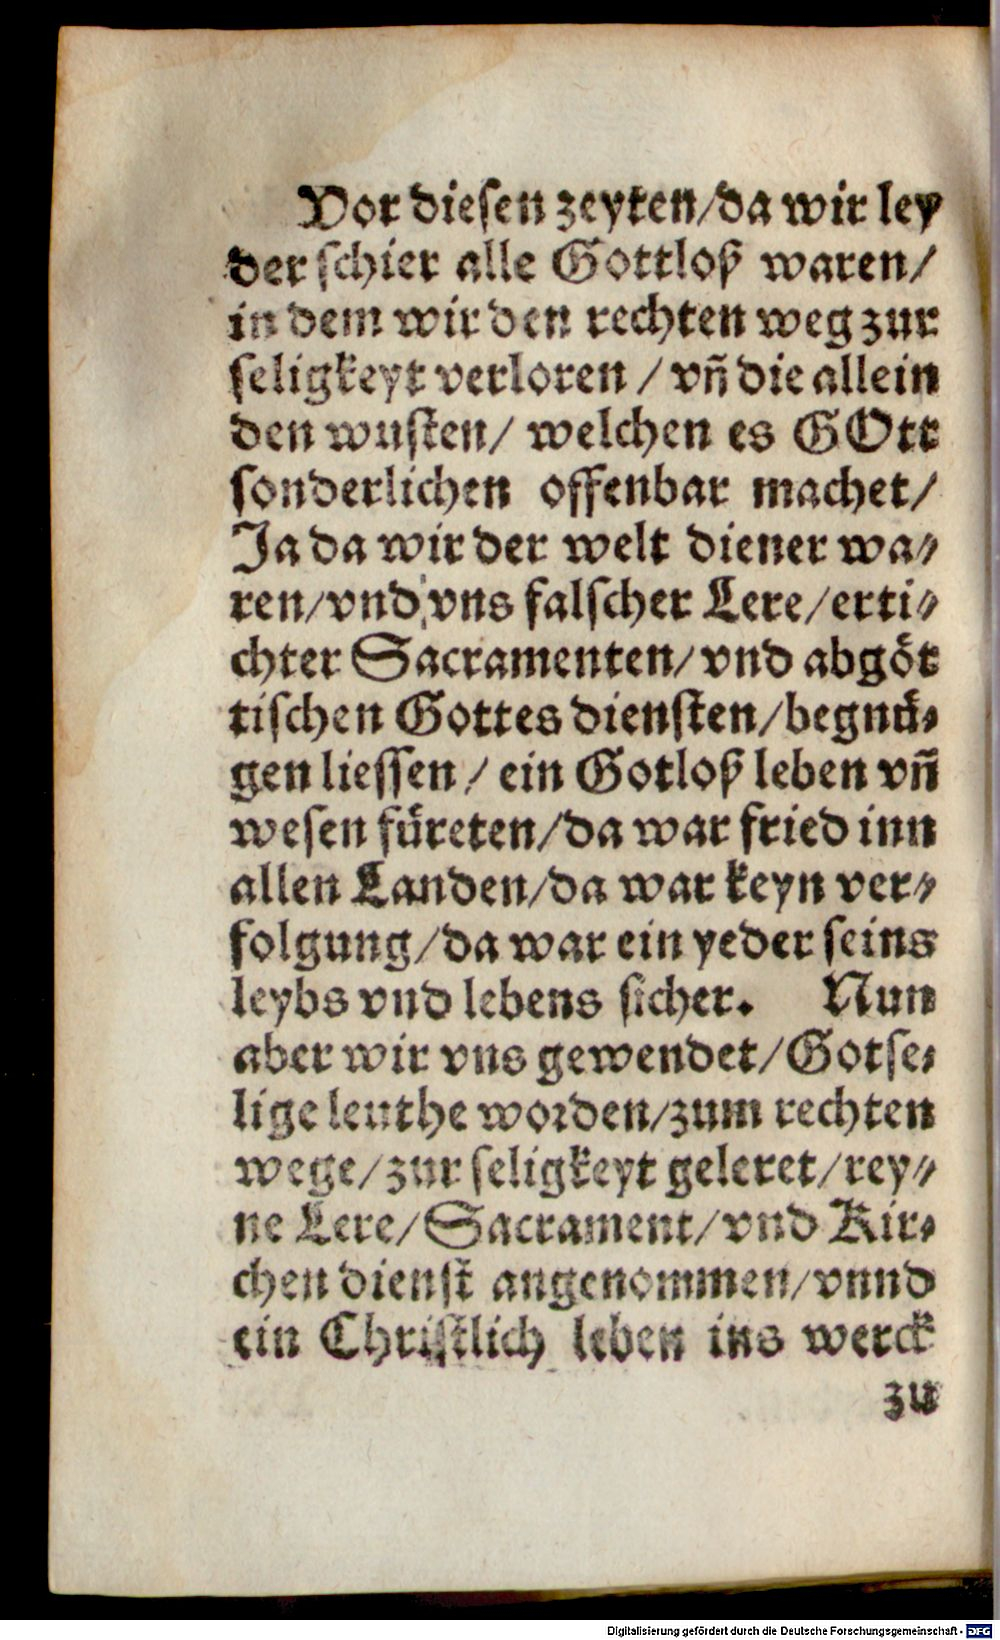 Vor diesen zeyten/da wir ley
der schier alle Gottloß waren/
in dem wir den rechten weg zur
seligkeyt verloren / vñ die allein
den wusten/ welchen es GOtt
sonderlichen offenbar machet/
Ja da wir der welt diener wa⸗
ren/vnd vns falscher Lere/erti⸗
chter Sacramenten/vnd abgöt
tischen Gottes diensten/begnü⸗
gen liessen / ein Gotloß leben vñ
wesen füreten/da war fried inn
allen Landen/da war keyn ver⸗
folgung/da war ein yeder seins
leybs vnd lebens sicher. Nun
aber wir vns gewendet/Gotse⸗
lige leuthe worden/zum rechten
wege/zur seligkeyt geleret/rey⸗
ne Lere/Sacrament/vnd Kir⸗
chen dienst angenommen/vnnd
ein Christlich leben ins werck
zu
Digitalisierung gefördert durch die Deutsche Forschungsgemeinschaft - DFG